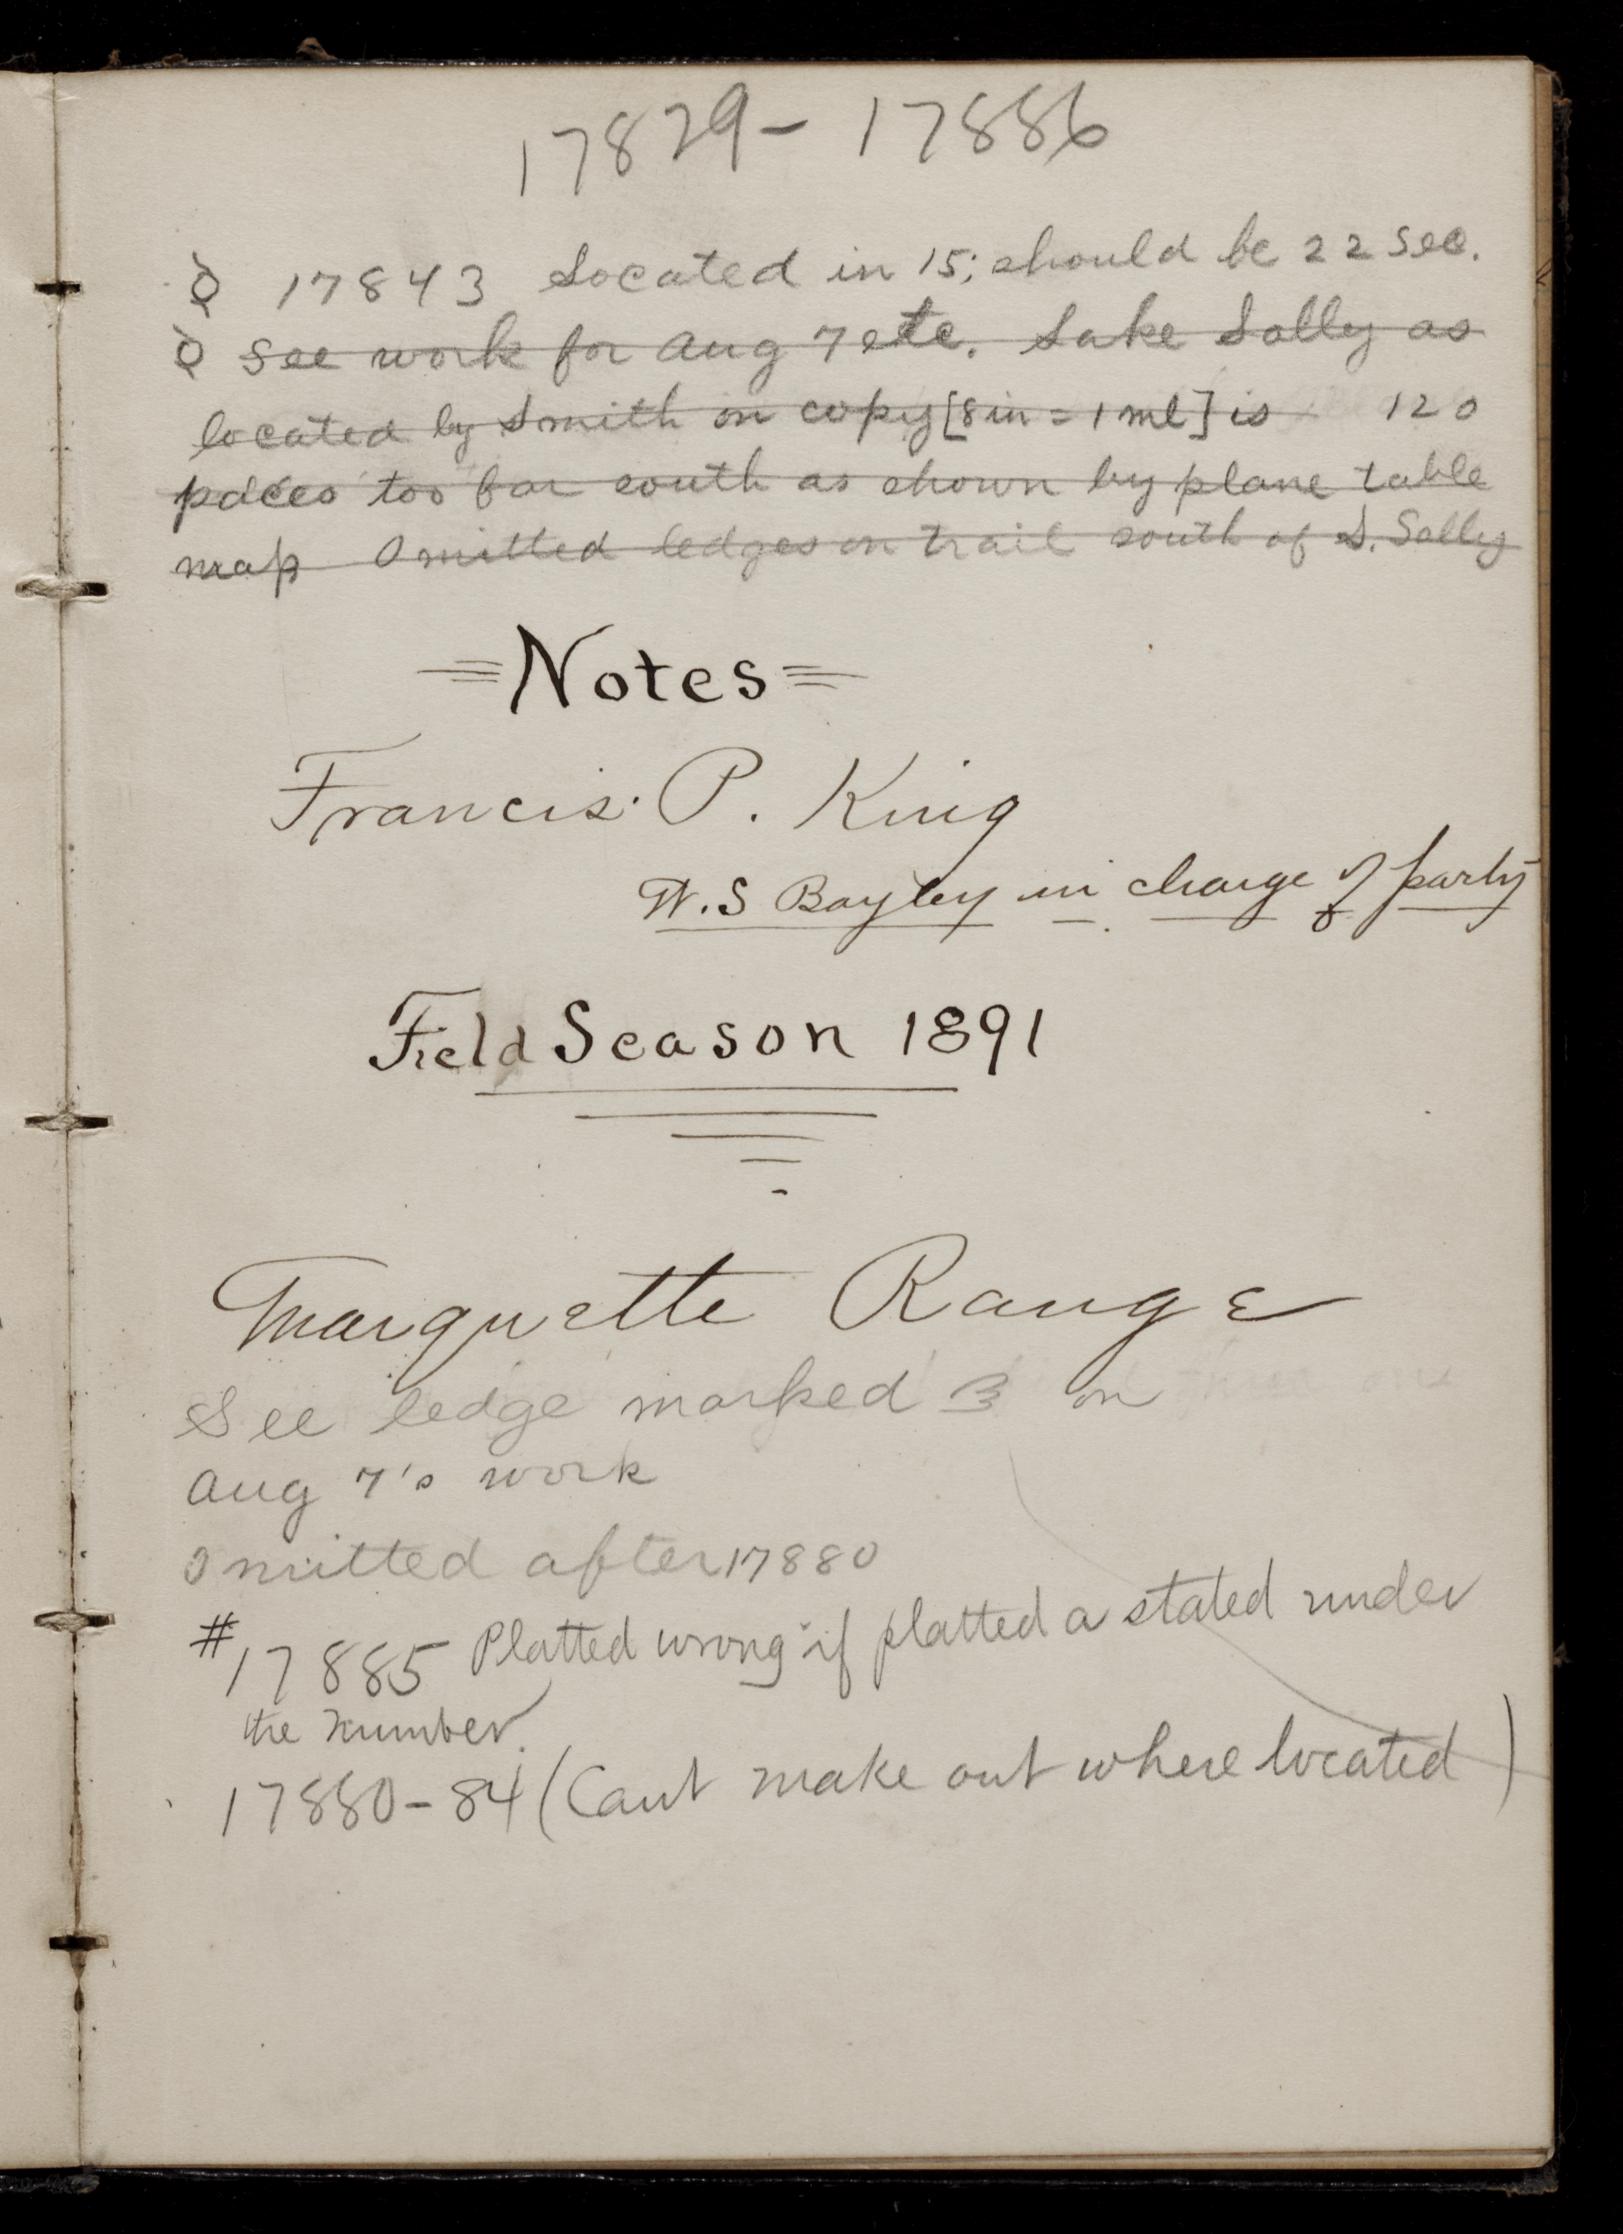 17829- 17886
17843 Located in 15; should be 22 sec.
See work for Aug 7 etc. Lake Sally as
located by Smith on copy [8 in = 1 ml] is 120
paces too far south as shown by plane table
map Omitted ledges on trail south of L. Sally
=Notes=
Francis. P. King
W.S Bayley in charge of party
Field Season 1891
Marquette Range
See ledge marked B on
Aug 7's work
Omitted after 17880
# 17885 Platted wrong if platted a stated under
the number.
17880-84 (Cant make out where located)